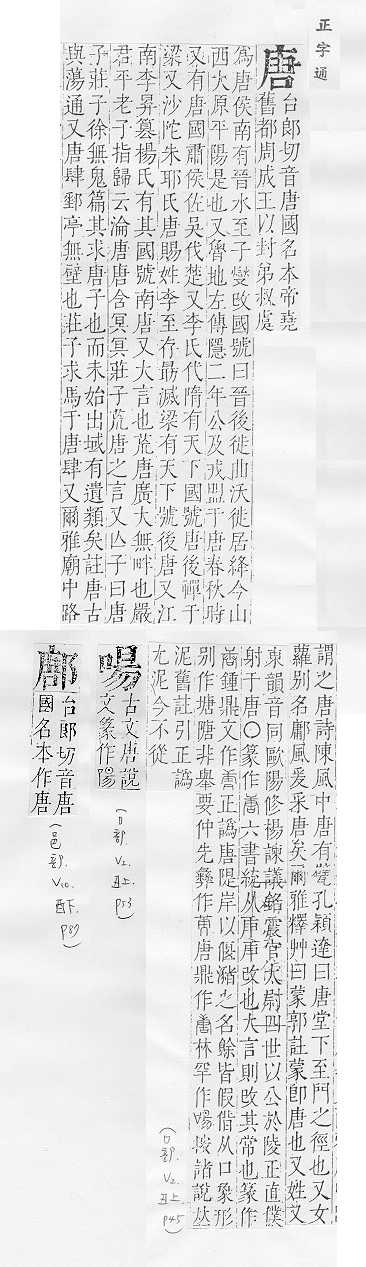 正字通
唐
台郎切音唐國名本帝堯
舊都周成王以封弟叔虞
為唐侯南有晉水至子燮改國號曰晉後徙曲沃徙居絳今山
西大原平陽是也又魯地左傳隱二年公及戎盟于唐春秋時
又有唐國肅侯佐吳代楚又李氏代隋有天下國號唐後禪于
梁又沙陀朱耶氏唐賜姓李至存勗滅梁有天下號後唐又江
南李昪篡楊氏有其國號南唐又大言也荒唐廣大無畔也嚴
君平老子指歸云淪唐唐含冥冥莊子荒唐之言又亾子曰唐
子莊子徐無鬼篇其求唐子也而未始出域有遺類矣註唐古
與蕩通又唐肆郵亭無壁也莊子求馬于唐肆又爾雅廟中路
謂之唐詩陳風中唐有甓孔穎達曰唐堂下至門之徑也又女
蘿别名鄘風爰采唐矣爾雅釋艸曰蒙郭註蒙卽唐也又姓又
東韻音同歐陽修楊諫議銘震官太尉四世以公於陵正直僕
射于唐○篆作 六書統从庚庚改也大言則改其常也篆作
鍾鼎文作 正譌唐隄岸以偃瀦之名餘皆假借从口象形
别作塘隚非舉要仲先彝作 唐鼎作 林罕作啺按諸說丛
泥舊註引正譌
尢泥今不從
(口部. V2. 丑上. p45)
啺
古文唐說
文篆作陽
(口部. V2. 丑上. p53)
鄌
台郎切音唐
國名本作唐
(邑部. V10. 酉下. p87)